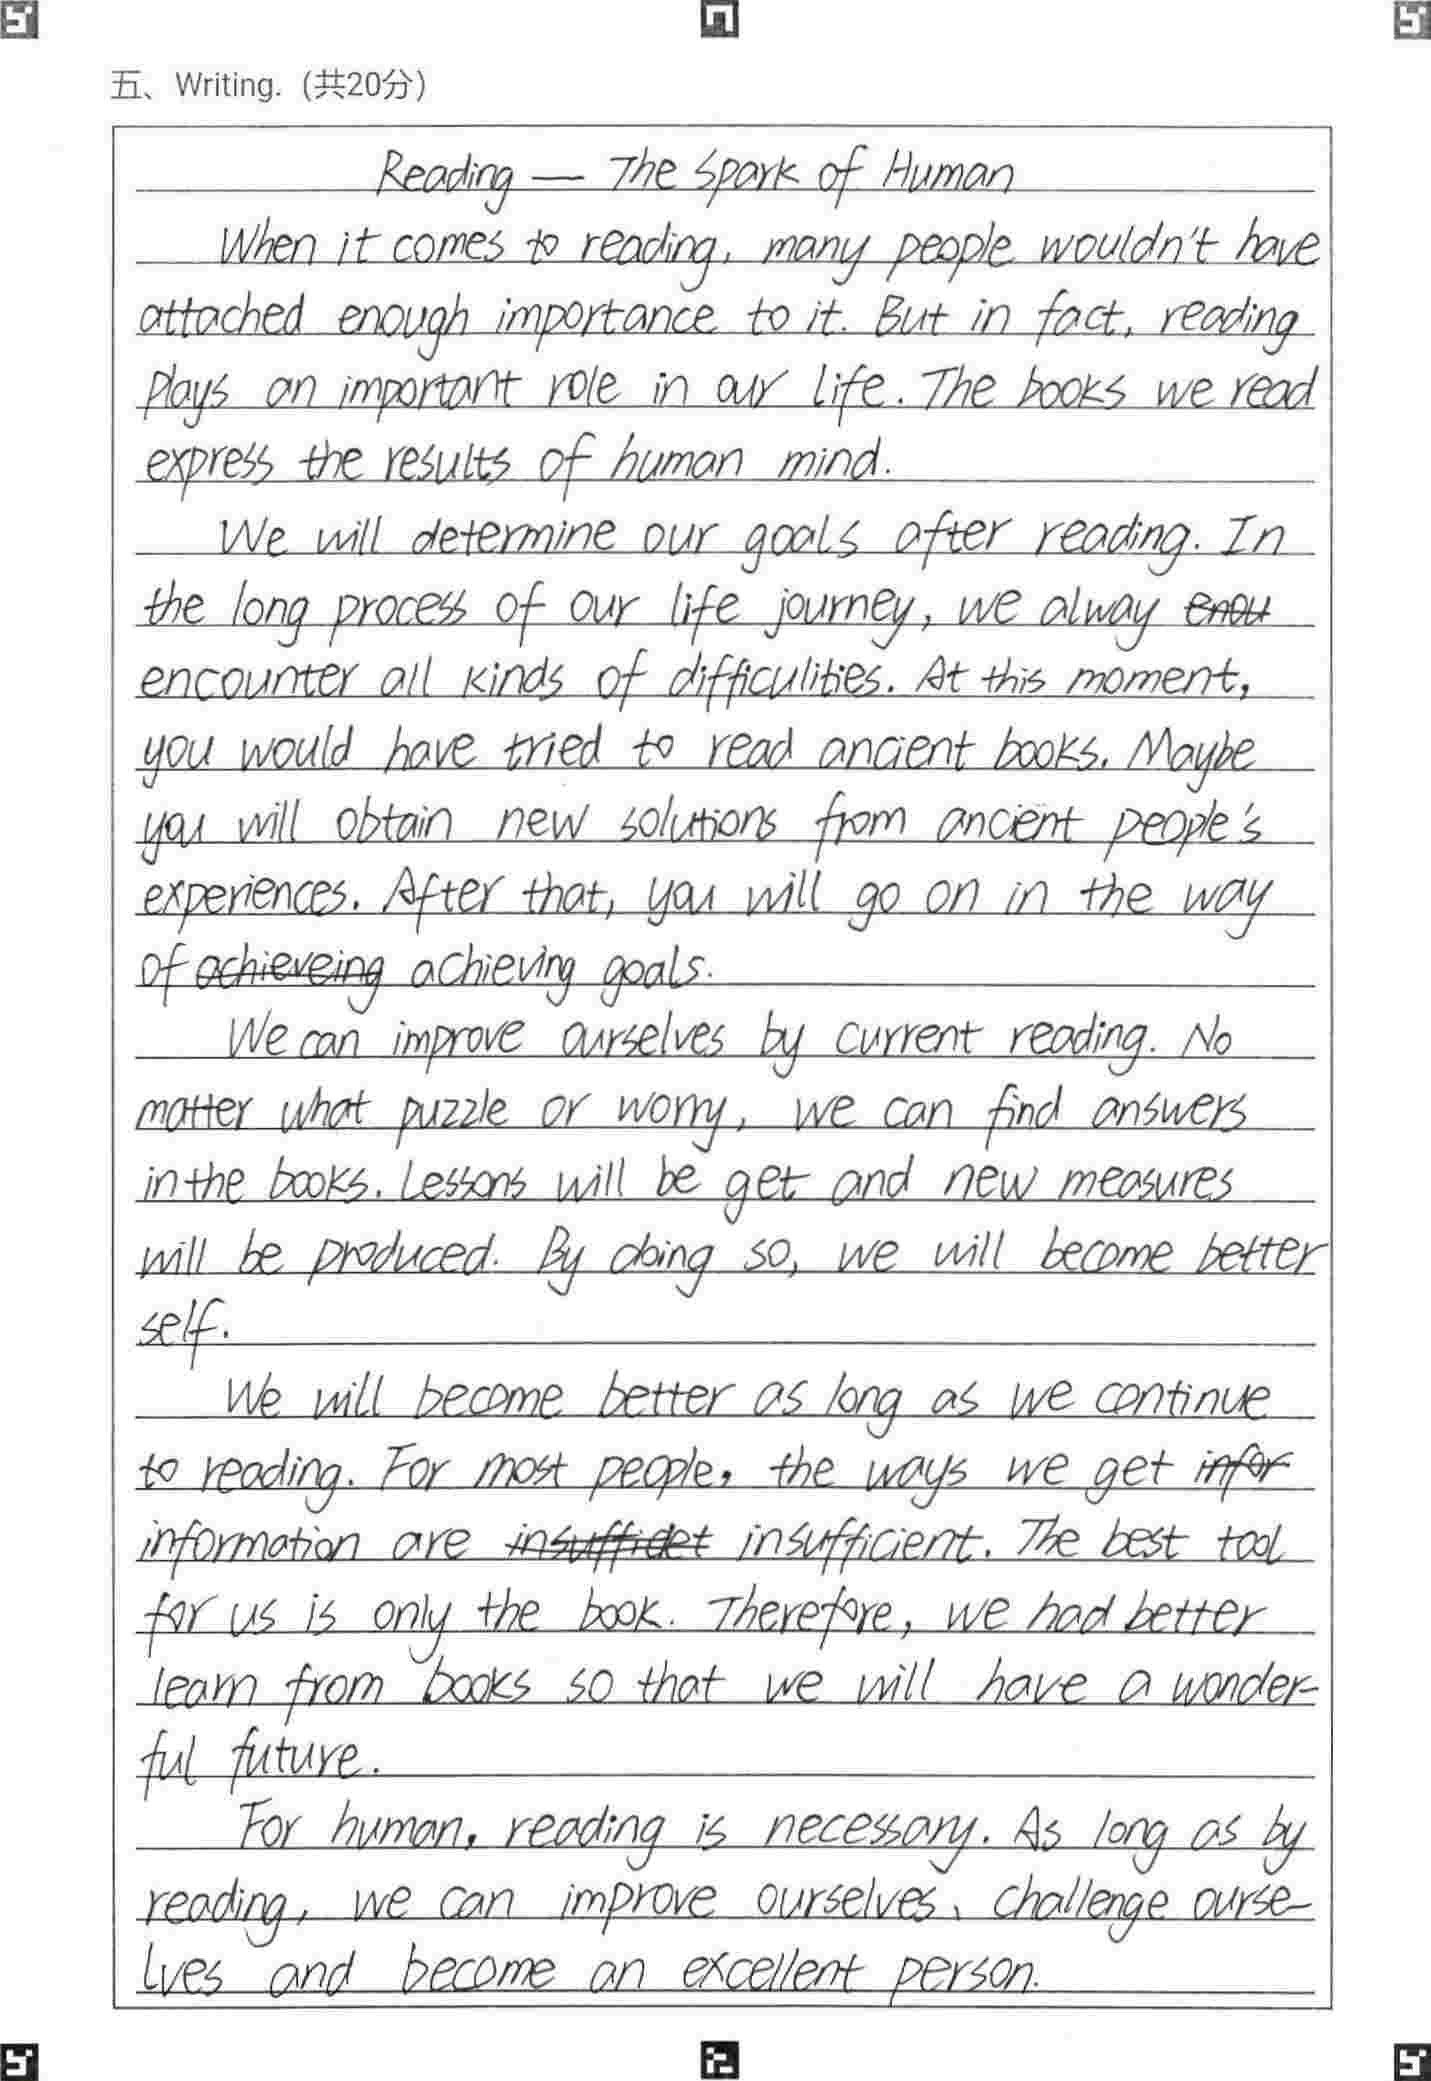 五、Writing.（共20分）
Reading — The Spark of Human
When it comes to reading, many people wouldn't have
attached enough importance to it. But in fact, reading
plays an important role in our life. The books we read
express the results of human mind.
We will determine our goals after reading. In
the long process of our life journey, we alway enou
encounter all kinds of difficulities. At this moment,
you would have tried to read ancient books. Maybe
you will obtain new solutions from ancient people's
experiences. After that, you will go on in the way
of achieveing achieving goals.
We can improve ourselves by current reading. No
matter what puzzle or worry, we can find answers
in the books. Lessons will be get and new measures
will be produced. By doing so, we will become better
self.
We will become better as long as we continue
to reading. For most people, the ways we get infor
information are insufficet insufficient. The best tool
for us is only the book. Therefore, we had better
learn from books so that we will have a wonder-
ful future.
For human, reading is necessary. As long as by
reading, we can improve ourselves、challenge ourse-
lves and become an excellent person.